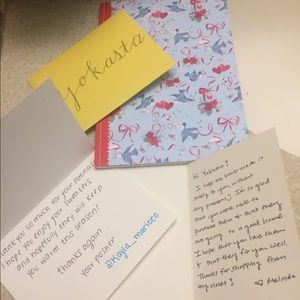 yokasta
Thank you so much for your purchase
I hope you enjoy your sweaters
and hopefully they will keep
you warm this season!
thanks again
your posher
@Kayla_
Hi Yokasta!
I hope the
safely to you, without
any problems! I'm so glad
that you were able to
purchase them & that they
are going to a good home.
I hope that you love them
& that they fit you well.
Thanks for shopping from
my closet!
♡ Melinda